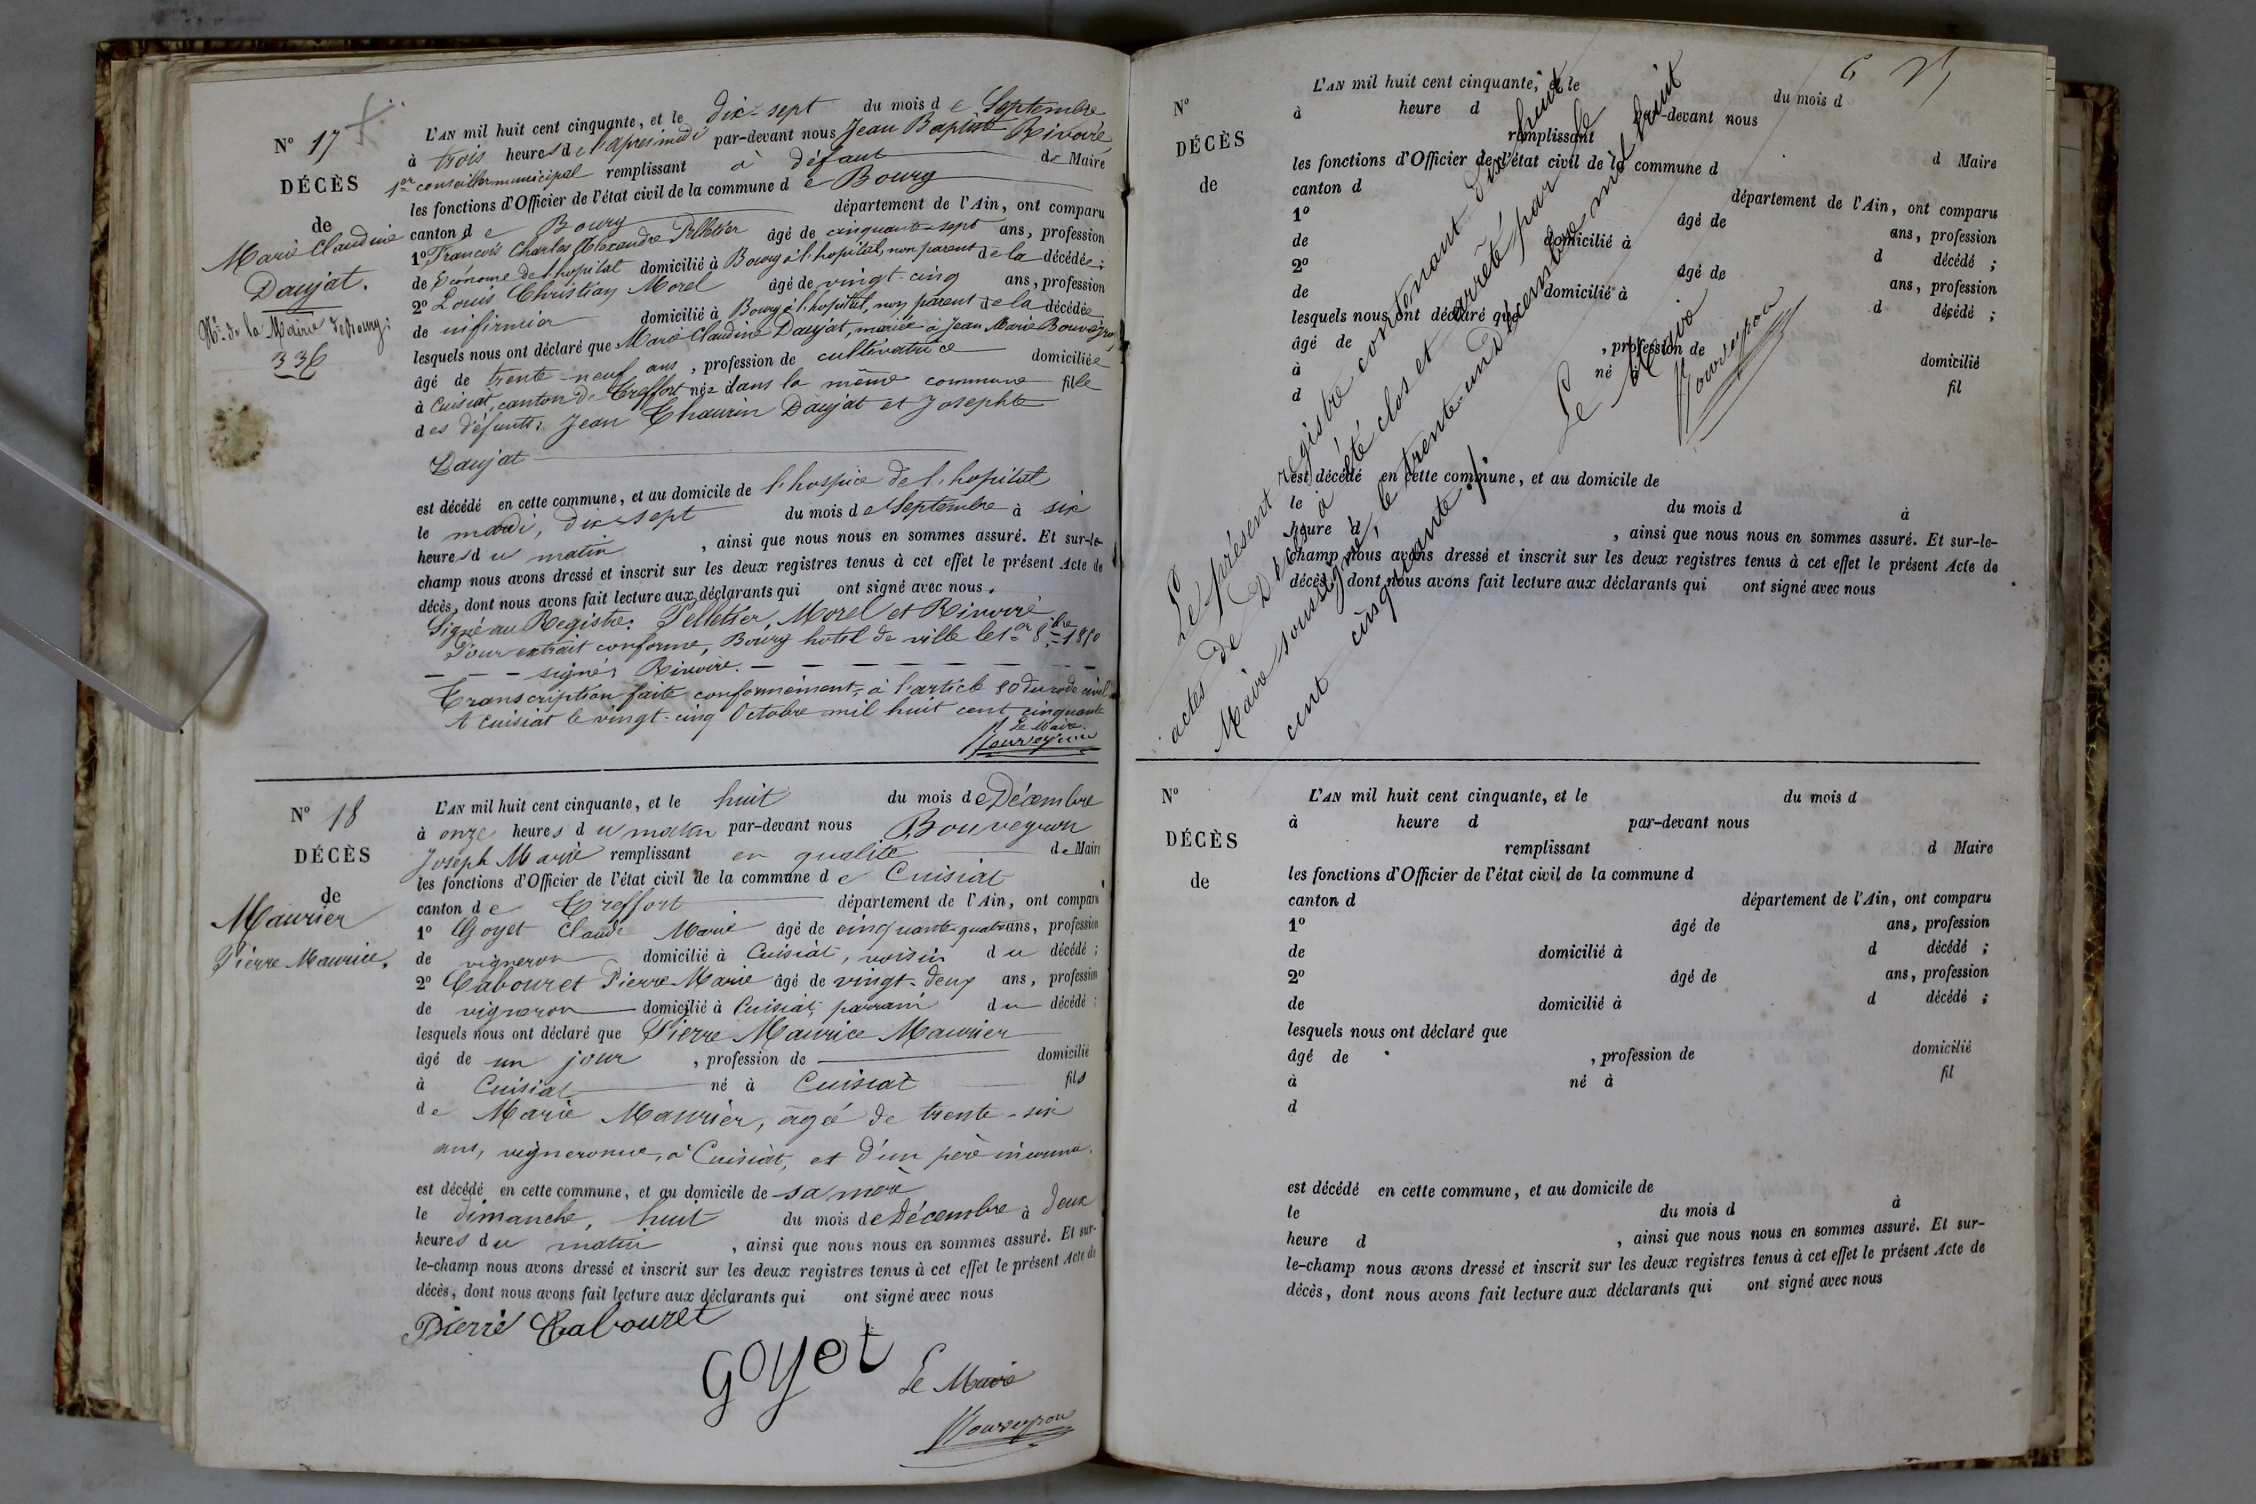 N° 17
DÉCÈS
de
Marie Claudine
Daujat.
N° de la Mairie de Bourg:
336
L'AN mil huit cent cinquante, et le dix-sept du mois de Septembre
à trois heures de l'après midi par-devant nous Jean Baptiste Rivoire
1er conseiller municipal remplissant à défaut de Maire
les fonctions d'Officier de l'état civil de la commune de Bourg
canton de Bourg département de l'Ain, ont comparu
1° François Charles Alexandre Pelletier âgé de cinquante-sept ans, profession
de Econome de l'hopital domicilié à Bourg à l'hopital, non parent de la décédée;
2° Louis Christian Morel âgé de vingt-cinq ans, profession
de infirmier domicilié à Bourg à l'hopital, non parent de la décédée
lesquels nous ont déclaré que Marie Claudine Daujat, mariée à Jean Marie
âgé de trente-neuf ans, profession de cultivatrice domiciliée
à Cuisiat, canton de Treffort née dans la même commune fille
des défunts: Jean Thaurin Daujat et Josephte
Daujat
est décédé en cette commune, et au domicile de l'hospice de l'hopital
le mardi, dix-sept du mois de Septembre à six
heures du matin, ainsi que nous nous en sommes assuré. Et sur-le-
champ nous avons dressé et inscrit sur les deux registres tenus à cet effet le présent Acte de
décès, dont nous avons fait lecture aux déclarants qui ont signé avec nous.
Signé au Registre: Pelletier, Morel et Rivoire
Pour extrait conforme, Bourg hotel de ville le 1er 8bre 1850
signé: Rivoire.
Transcription faite conformément à l'article 80 du code civil
A Cuisiat le vingt-cinq Octobre mil huit cent cinquante
Le Maire
Bouveyron
N° 18
DÉCÈS
de
Maurier
Pierre Maurice.
L'AN mil huit cent cinquante, et le huit du mois de Décembre
à onze heures du matin par-devant nous Bouveyron
Joseph Marie remplissant en qualité de Maire
les fonctions d'Officier de l'état civil de la commune de Cuisiat
canton de Treffort département de l'Ain, ont comparu
1° Goyet Claude Marie âgé de cinquante-quatre ans, profession
de vigneron domicilié à Cuisiat, voisin du décédé;
2° Cabouret Pierre-Marie âgé de vingt-deux ans, profession
de vigneron domicilié à Cuisiat, parrain du décédé;
lesquels nous ont déclaré que Pierre Maurice Maurier
âgé de un jour, profession de domicilié
à Cuisiat né à Cuisiat fils
de Marie Maurier, âgée de trente-six
ans, vigneronne, à Cuisiat, et d'un père inconnu.
est décédé en cette commune, et au domicile de sa mère
le dimanche, huit du mois de Décembre à deux
heures du matin, ainsi que nous nous en sommes assuré. Et sur-
le-champ nous avons dressé et inscrit sur les deux registres tenus à cet effet le présent Acte de
décès, dont nous avons fait lecture aux déclarants qui ont signé avec nous
Pierre Cabouret
Goyet
Le Maire
Bouveyron
N°
DÉCÈS
de
L'AN mil huit cent cinquante, et le du mois d
à heure d par-devant nous
remplissant d Maire
les fonctions d'Officier de l'état civil de la commune d
canton d département de l'Ain, ont comparu
1° âgé de ans, profession
de domicilié à d décédé;
2° âgé de ans, profession
de domicilié à d décédé;
lesquels nous ont déclaré que
âgé de , profession de domicilié
à né à fil
d
est décédé en cette commune, et au domicile de
le du mois d à
heure d , ainsi que nous nous en sommes assuré. Et sur-le-
champ nous avons dressé et inscrit sur les deux registres tenus à cet effet le présent Acte de
décès, dont nous avons fait lecture aux déclarants qui ont signé avec nous
Le présent registre contenant dix huit
actes de Décès à été clos et arrêté par le
Maire soussigné, le trente-un Décembre mil huit
cent cinquante./.
Le Maire
Bouveyron
N°
DÉCÈS
de
L'AN mil huit cent cinquante, et le du mois d
à heure d par-devant nous
remplissant d Maire
les fonctions d'Officier de l'état civil de la commune d
canton d département de l'Ain, ont comparu
1° âgé de ans, profession
de domicilié à d décédé;
2° âgé de ans, profession
de domicilié à d décédé;
lesquels nous ont déclaré que
âgé de , profession de domicilié
à né à fil
d
est décédé en cette commune, et au domicile de
le du mois d à
heure d , ainsi que nous nous en sommes assuré. Et sur-
le-champ nous avons dressé et inscrit sur les deux registres tenus à cet effet le présent Acte de
décès, dont nous avons fait lecture aux déclarants qui ont signé avec nous